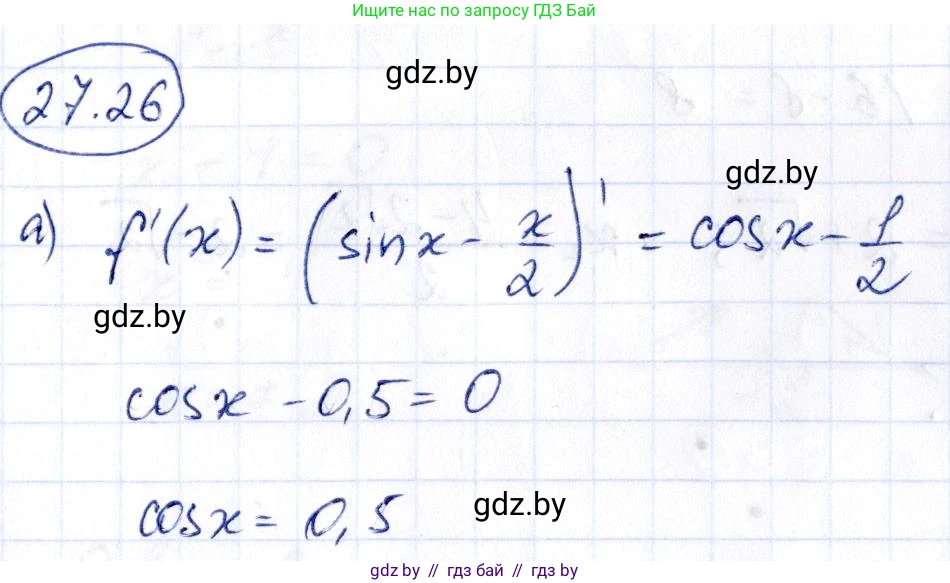 Ищите нас по запросу ГДЗ Бай
gdz.by
27.26
gdz.by
а) f'(x) = (sinx - x/2)' = cosx - 1/2
gdz.by
cosx - 0,5 = 0
cosx = 0,5
gdz.by
gdz.by // гдз бай // гдз by